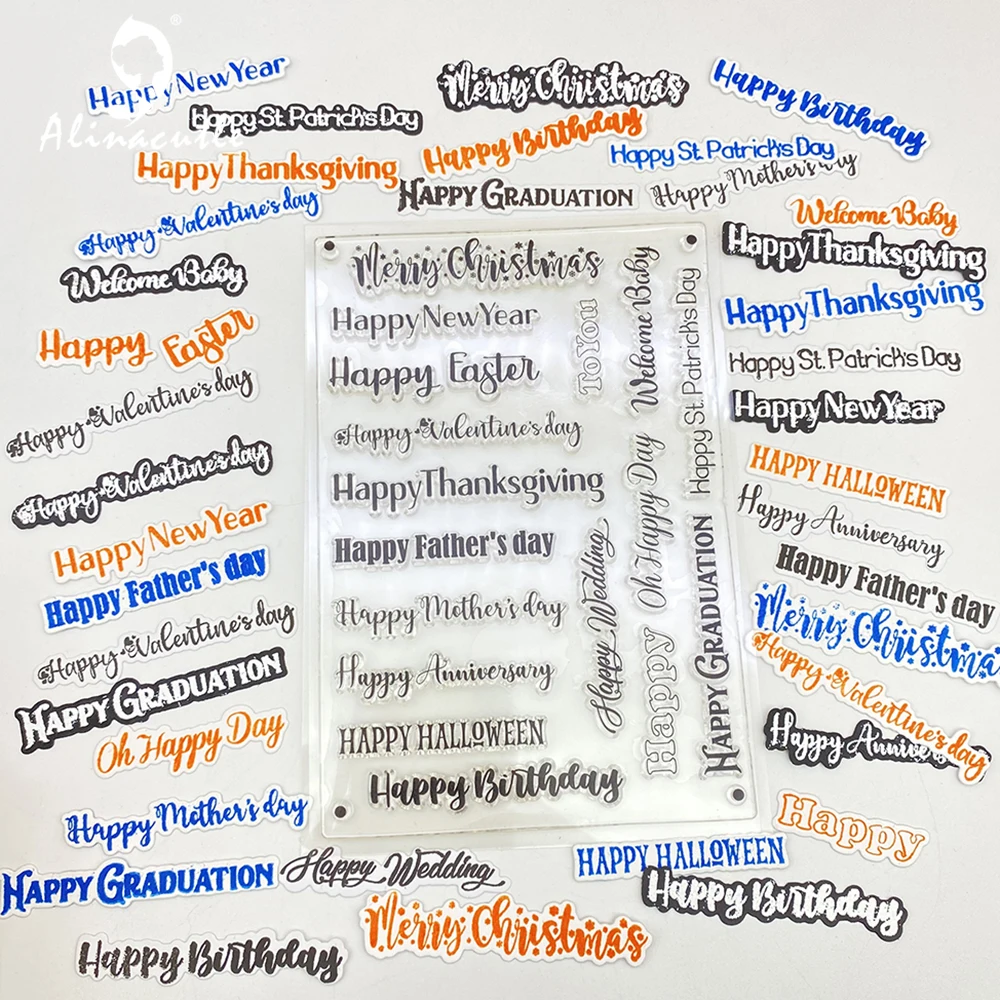 Happy New Year
Merry Christmas
Happy Birthday
Happy St. Patrick's Day
Alinacutle
Happy Birthday
Happy St. Patrick's Day
Happy Thanksgiving
Happy Graduation
Happy Mother's day
Happy Valentine's day
Welcome Baby
Welcome Baby
Happy Thanksgiving
Happy Easter
Happy Thanksgiving
Happy St. Patrick's Day
Happy Valentine's day
Happy New Year
Happy Valentine's day
HAPPY HALLOWEEN
Happy New Year
Happy Anniversary
Happy Father's day
Happy Father's day
Happy Valentine's day
Merry Christma
Happy Graduation
Happy Valentine's day
Oh Happy Day
Happy Anniver
Happy Mother's day
Happy
Merry Christmas
Happy New Year
Happy Easter
Happy Valentine's day
Happy Thanksgiving
Happy Father's day
Happy Mother's day
Happy Anniversary
HAPPY HALLOWEEN
Happy Birthday
To You
Welcome Baby
Happy St. Patrick's Day
Oh Happy Day
Happy Wedding
Happy
Happy Graduation
Happy Graduation
Happy Wedding
HAPPY HALLOWEEN
Happy Birthday
Merry Christmas
Happy Birthday